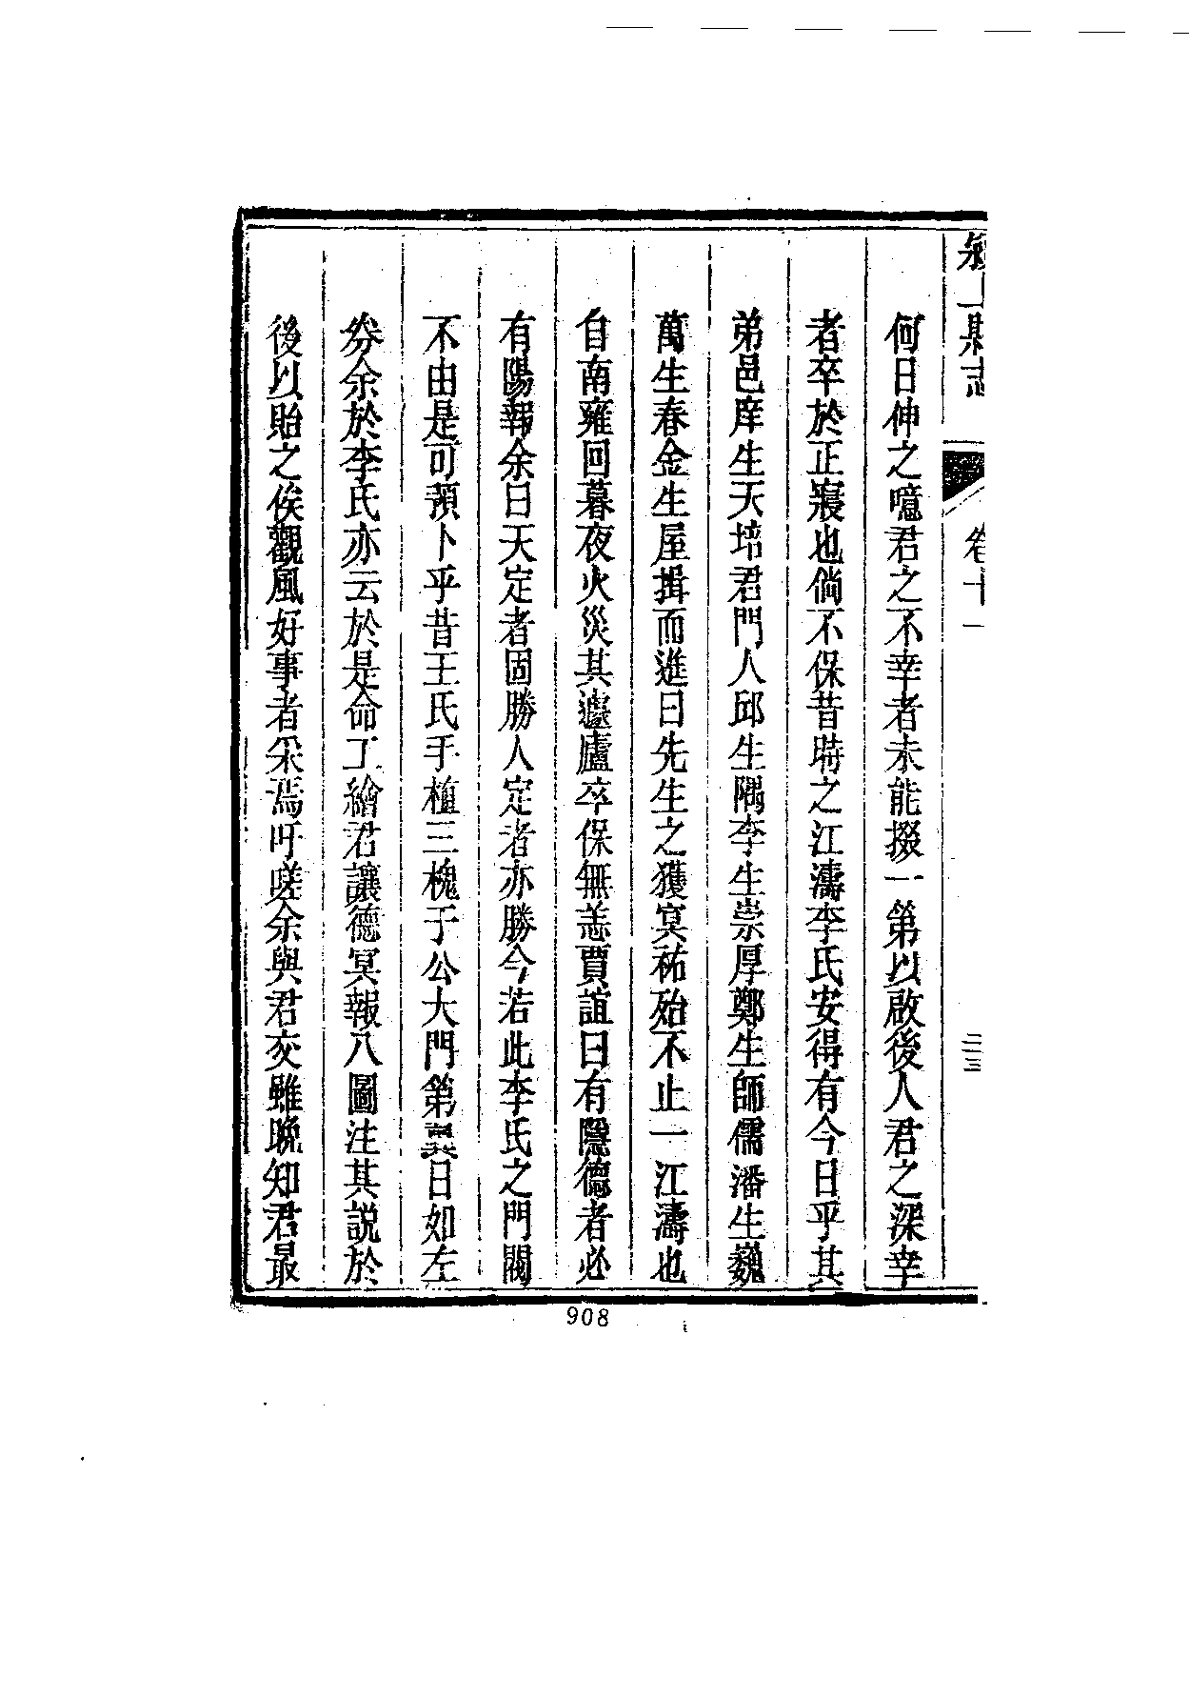 縣志
卷十一
三三
何日伸之噫君之不幸者未能掇一第以啟後人君之深幸
者卒於正寢也倘不保昔時之江濤李氏安得有今日乎其
弟邑庠生天培君門人邱生隅李生崇厚鄭生師儒潘生巍
萬生春金生屋揖而進曰先生之獲冥祐殆不止一江濤也
自南雍回暮夜火災其遽廬卒保無恙賈誼曰有隱德者必
有陽報余曰天定者固勝人定者亦勝今若此李氏之門閥
不由是可預卜乎昔王氏手植三槐于公大門第異日如左
券余於李氏亦云於是命工繪君讓德冥報八圖注其説於
後以貽之俟觀風好事者采焉吁嗟余與君交雖晚知君最
908